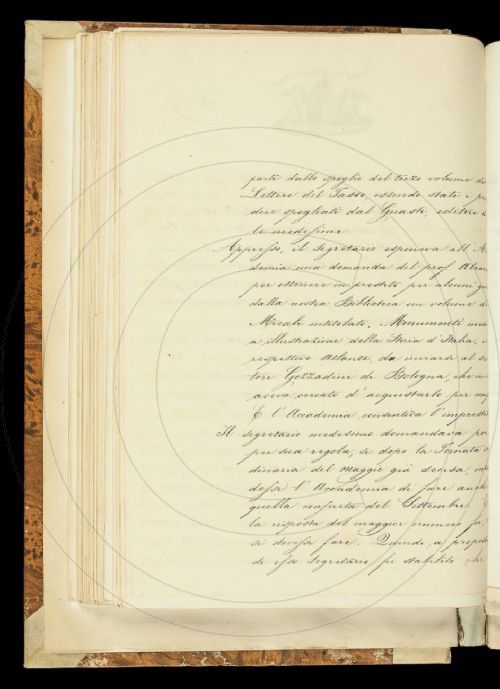 parte dallo spoglio del terzo volume de
Lettere del Tasso, essendo state i pri
dieci spogliati dal Guasti, editore d
le medesime.
Appresso, il Segretario esponeva all' A
demia una domanda del prof.
per ottenere in prestito per alcuni gio
dalla nostra Biblioteca un volume d
Micali intitolato, Monumenti ined
a illustrazione della Storia d'Italia, e
respettivo Atlante, da inviarsi al
tore Gozzadini di Bologna, che in
aveva cercato d'acquistarlo per
E l'Accademia consentiva l'imprestit
Il segretario medesimo domandava poi
per sua regola, se dopo la Tornata
dinaria del maggio già decorsa, inte
desse l'Accademia di fare anche
quella consueta del Settembre. E
la risposta del maggior numero fu
si dovesse fare. Quindi, a proposta
di esso Segretario fu stabilito che